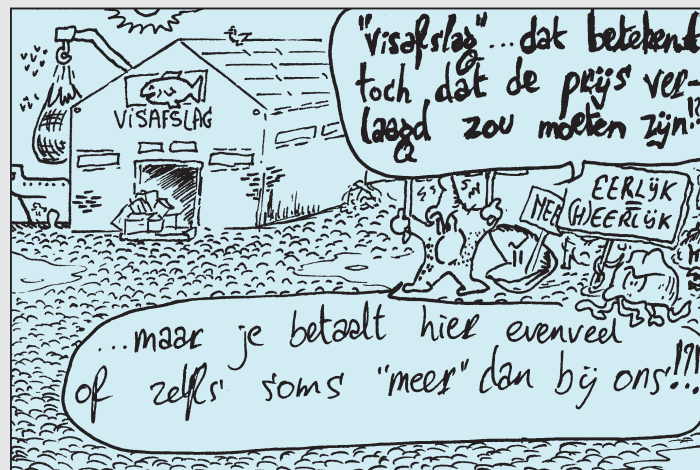 "visafslag"...dat betekent
toch dat de prijs ver-
laagd zou moeten zijn!?
VISAFSLAG
EERLIJK
=
(H)EERLIJK
...maar je betaalt hier evenveel
of zelfs soms "meer" dan bij ons!!!?!